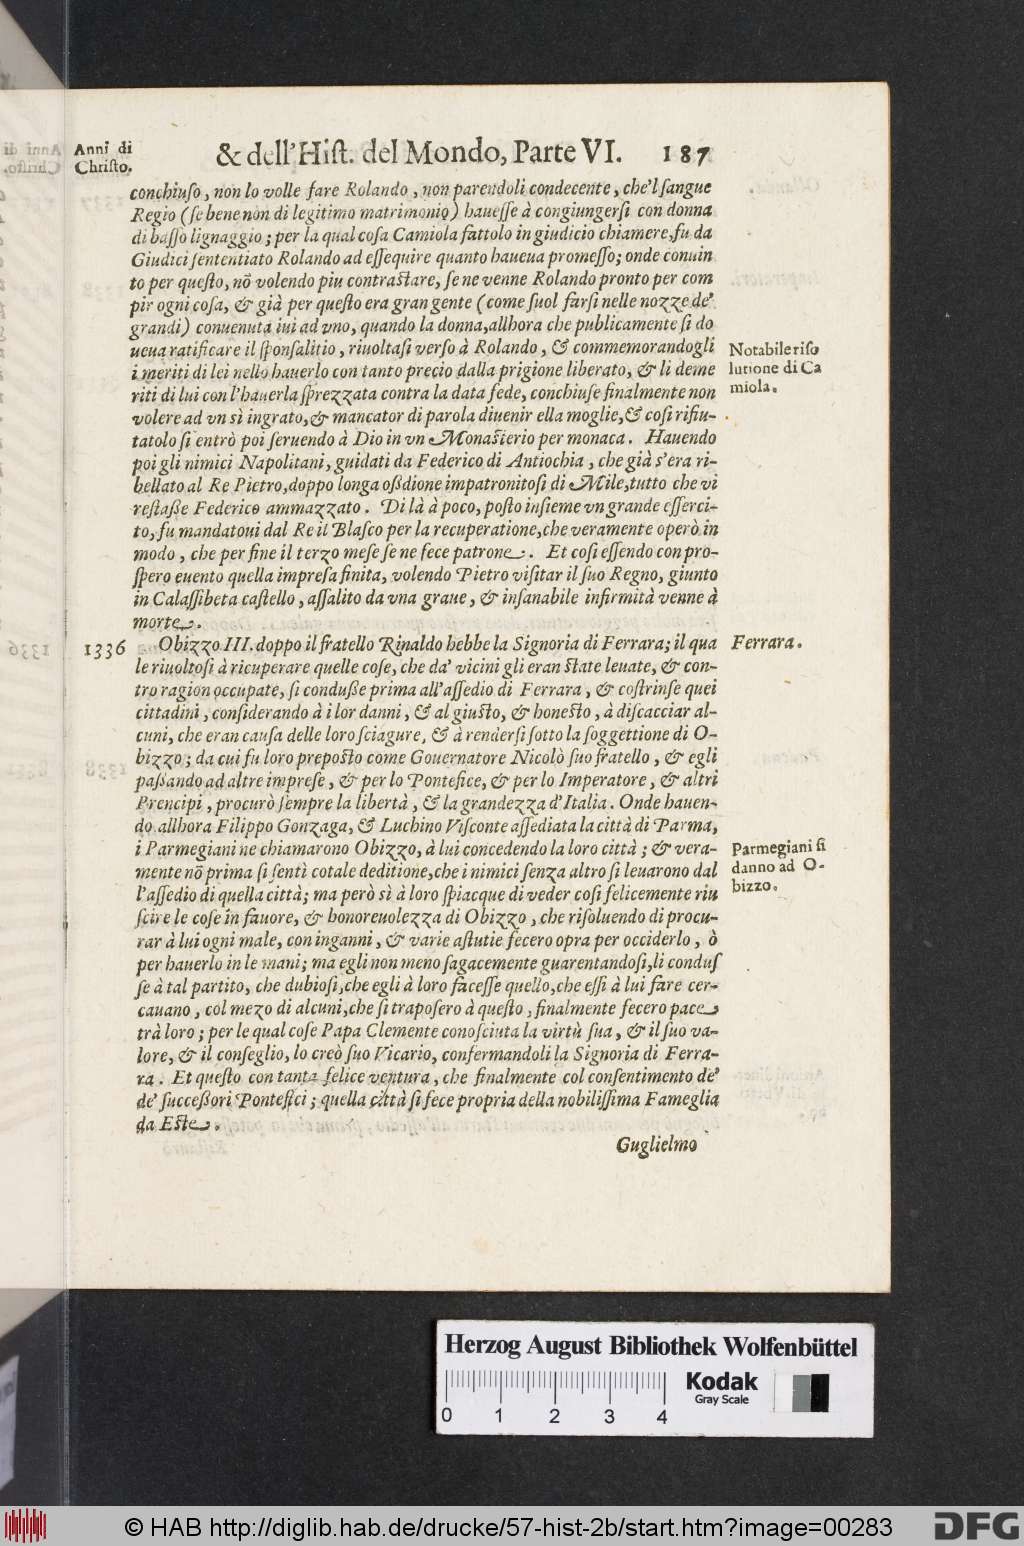 Anni di
Christo.
& dell'Hiſt. del Mondo, Parte VI. 187
conchiuſo, non lo volle fare Rolando, non parendoli condecente, che'l ſangue
Regio (ſe bene non di legitimo matrimonio) haueſſe à congiungerſi con donna
di baſſo lignaggio; per la qual coſa Camiola fattolo in giudicio chiamere, fu da
Giudici ſententiato Rolando ad eſſequire quanto haueua promeſſo; onde conuin
to per queſto, nõ volendo piu contraſtare, ſe ne venne Rolando pronto per com
pir ogni coſa, & già per queſto era gran gente (come ſuol farſi nelle nozze de'
grandi) conuenuta iui ad vno, quando la donna, allhora che publicamente ſi do
ueua ratificare il ſponſalitio, riuoltaſi verſo à Rolando, & commemorandogli
i meriti di lei nello hauerlo con tanto precio dalla prigione liberato, & li deme
riti di lui con l'hauerla ſprezzata contra la data fede, conchiuſe finalmente non
volere ad vn sì ingrato, & mancator di parola diuenir ella moglie, & coſi rifiu-
tatolo ſi entrò poi ſeruendo à Dio in vn Monaſterio per monaca. Hauendo
poi gli nimici Napolitani, guidati da Federico di Antiochia, che già s'era ri-
bellato al Re Pietro, doppo longa oßdione impatronitoſi di Mile, tutto che vi
reſtaße Federico ammazzato. Di là à poco, poſto inſieme vn grande eſſerci-
to, fu mandatoui dal Re il Blaſco per la recuperatione, che veramente operò in
modo, che per fine il terzo meſe ſe ne fece patrone. Et coſi eſſendo con pro-
ſpero euento quella impreſa finita, volendo Pietro viſitar il ſuo Regno, giunto
in Calaſſibeta caſtello, aſſalito da vna graue, & inſanabile infirmità venne à
morte.
Notabile riſo
lutione di Ca
miola.
1336
Obizzo III. doppo il fratello Rinaldo hebbe la Signoria di Ferrara; il qua
le riuoltoſi à ricuperare quelle coſe, che da' vicini gli eran ſtate leuate, & con-
tro ragion occupate, ſi conduße prima all'aſſedio di Ferrara, & coſtrinſe quei
cittadini, conſiderando à i lor danni, & al giuſto, & honeſto, à diſcacciar al-
cuni, che eran cauſa delle loro ſciagure, & à renderſi ſotto la ſoggettione di O-
bizzo; da cui fu loro prepoſto come Gouernatore Nicolò ſuo fratello, & egli
paßando ad altre impreſe, & per lo Pontefice, & per lo Imperatore, & altri
Prencipi, procurò ſempre la libertà, & la grandezza d'Italia. Onde hauen-
do allhora Filippo Gonzaga, & Luchino Viſconte aſſediata la città di Parma,
i Parmegiani ne chiamarono Obizzo, à lui concedendo la loro città; & vera-
mente nõ prima ſi ſentì cotale deditione, che i nimici ſenza altro ſi leuarono dal
l'aſſedio di quella città; ma però sì à loro ſpiacque di veder coſi felicemente riu
ſcire le coſe in fauore, & honoreuolezza di Obizzo, che riſoluendo di procu-
rar à lui ogni male, con inganni, & varie aſtutie fecero opra per occiderlo, ò
per hauerlo in le mani; ma egli non meno ſagacemente guarentandoſi, li conduſ
ſe à tal partito, che dubioſi, che egli à loro faceſſe quello, che eſſi à lui fare cer-
cauano, col mezo di alcuni, che ſi trapoſero à queſto, finalmente fecero pace
trà loro; per le qual coſe Papa Clemente conoſciuta la virtù ſua, & il ſuo va-
lore, & il conſeglio, lo creò ſuo Vicario, confermandoli la Signoria di Ferra-
ra. Et queſto con tanta felice ventura, che finalmente col conſentimento de'
de' ſucceßori Pontefici; quella città ſi fece propria della nobiliſſima Fameglia
da Eſte.
Ferrara.
Parmegiani ſi
danno ad O-
bizzo.
Guglielmo
Herzog August Bibliothek Wolfenbüttel
0 1 2 3 4
Kodak
Gray Scale
© HAB http://diglib.hab.de/drucke/57-hist-2b/start.htm?image=00283
DFG